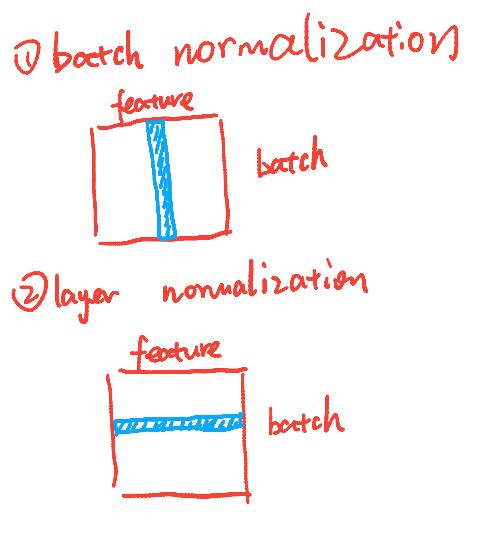 ① batch normalization
feature
batch
② layer normalization
feature
batch